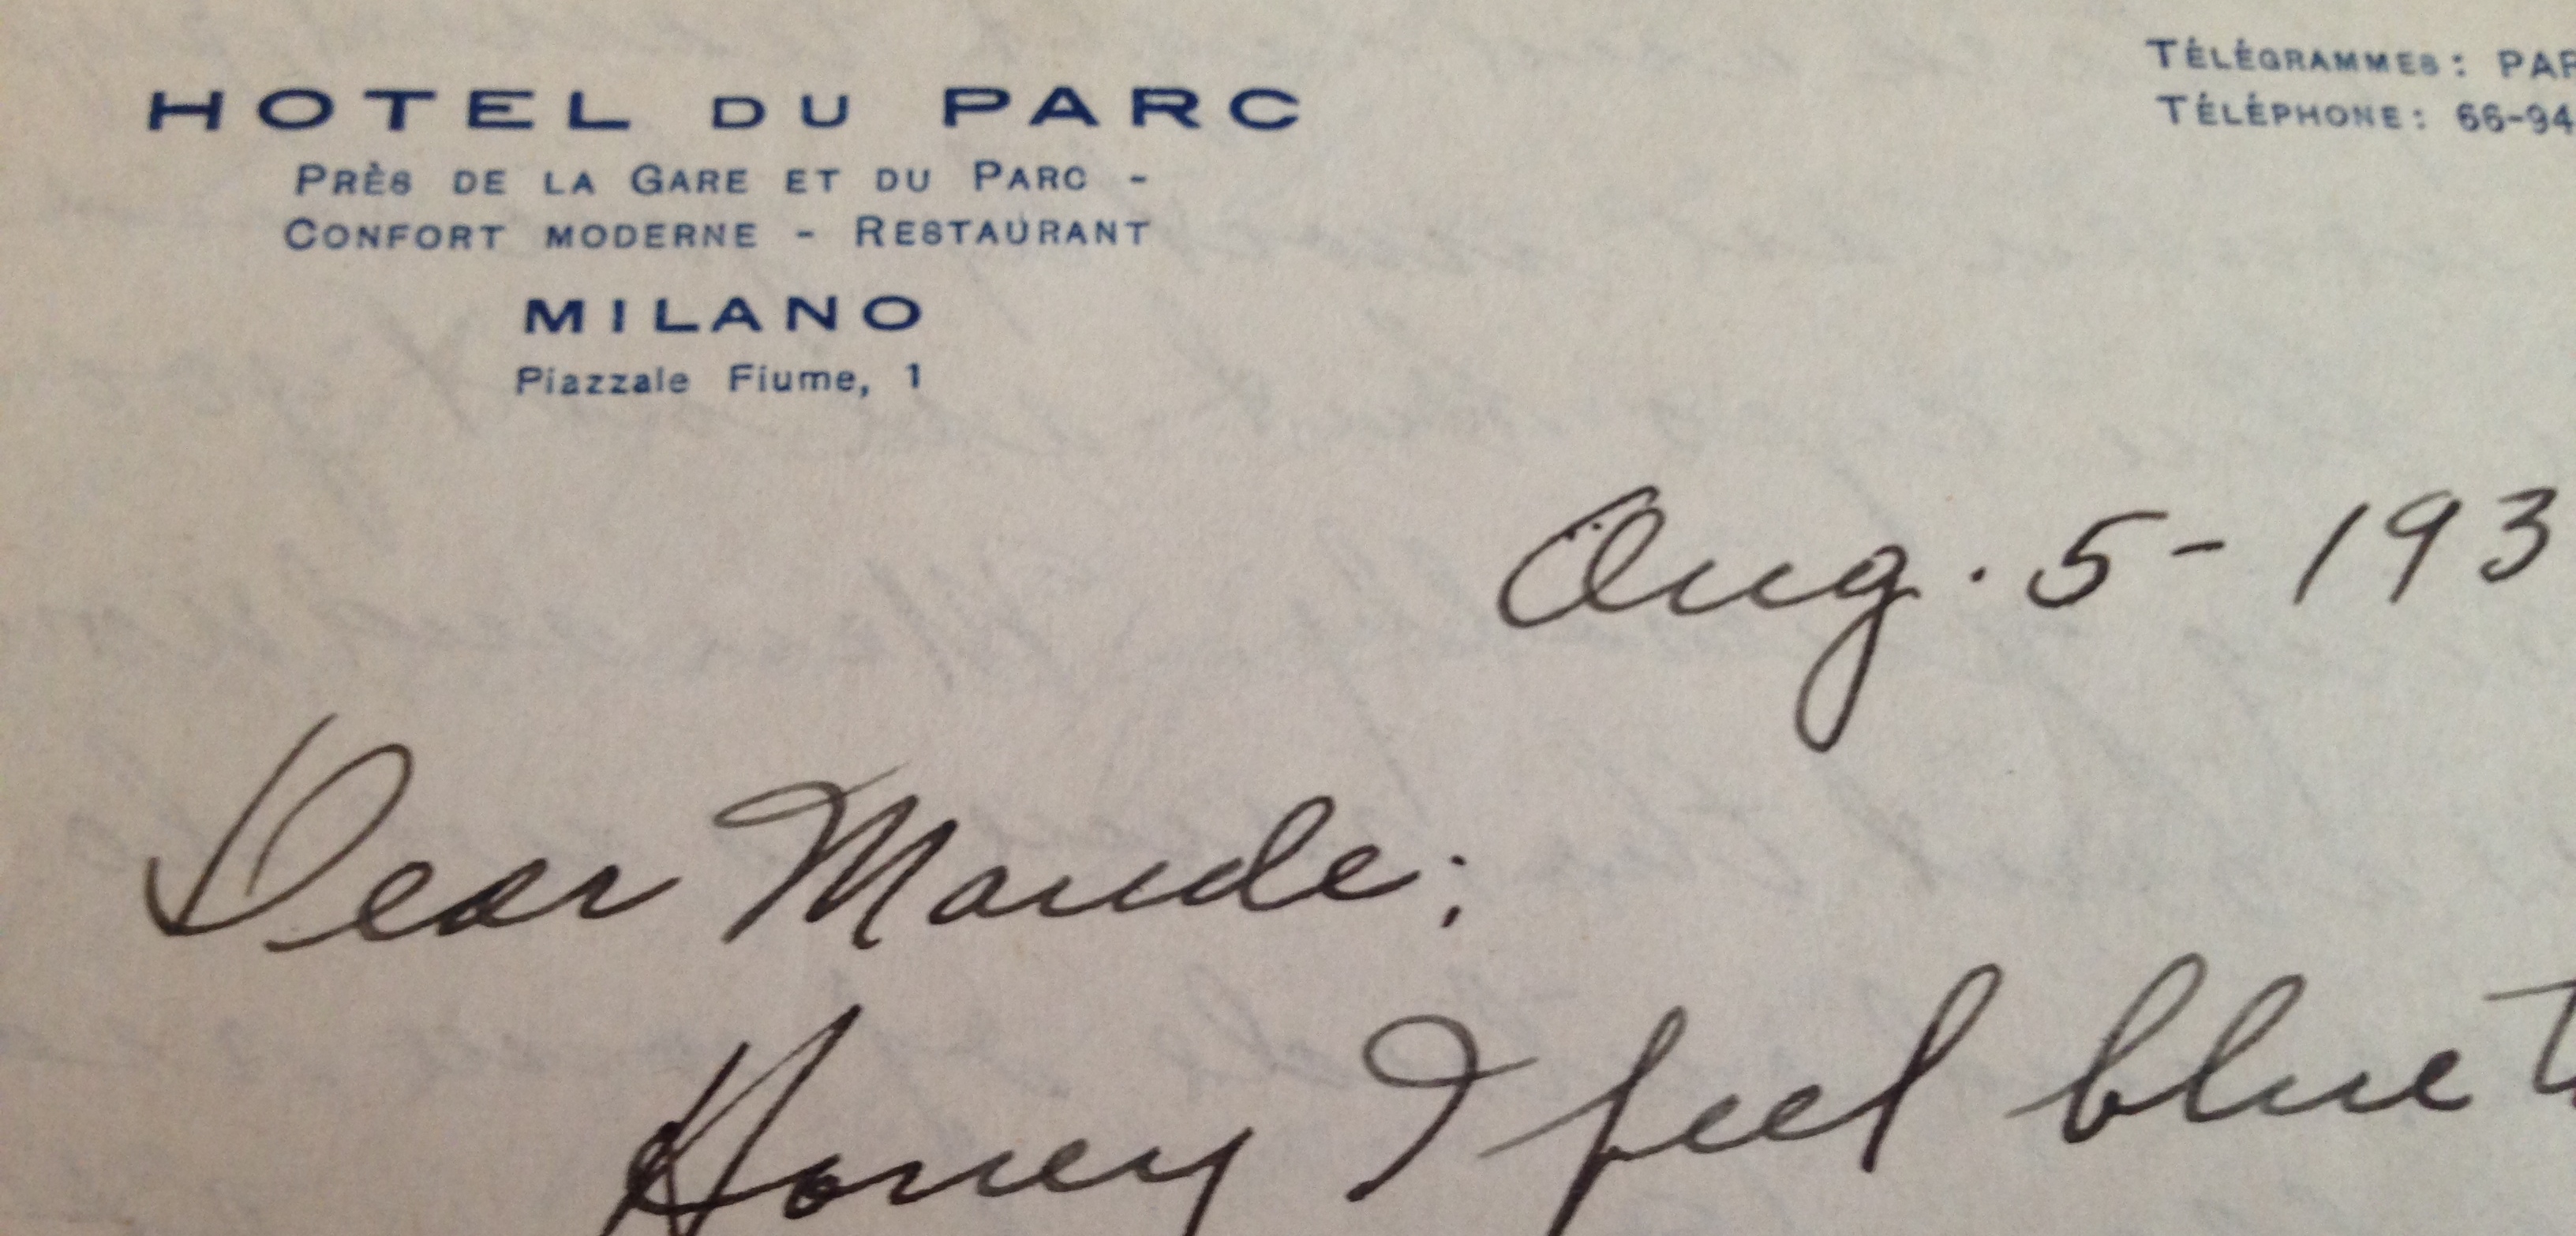 HOTEL DU PARC
PRÈS DE LA GARE ET DU PARC -
CONFORT MODERNE - RESTAURANT
MILANO
Piazzale Fiume, 1
TÉLÉGRAMMES: PAR
TÉLÉPHONE: 66-94
Aug. 5 - 193
Dear Maude:
Honey I feel blue